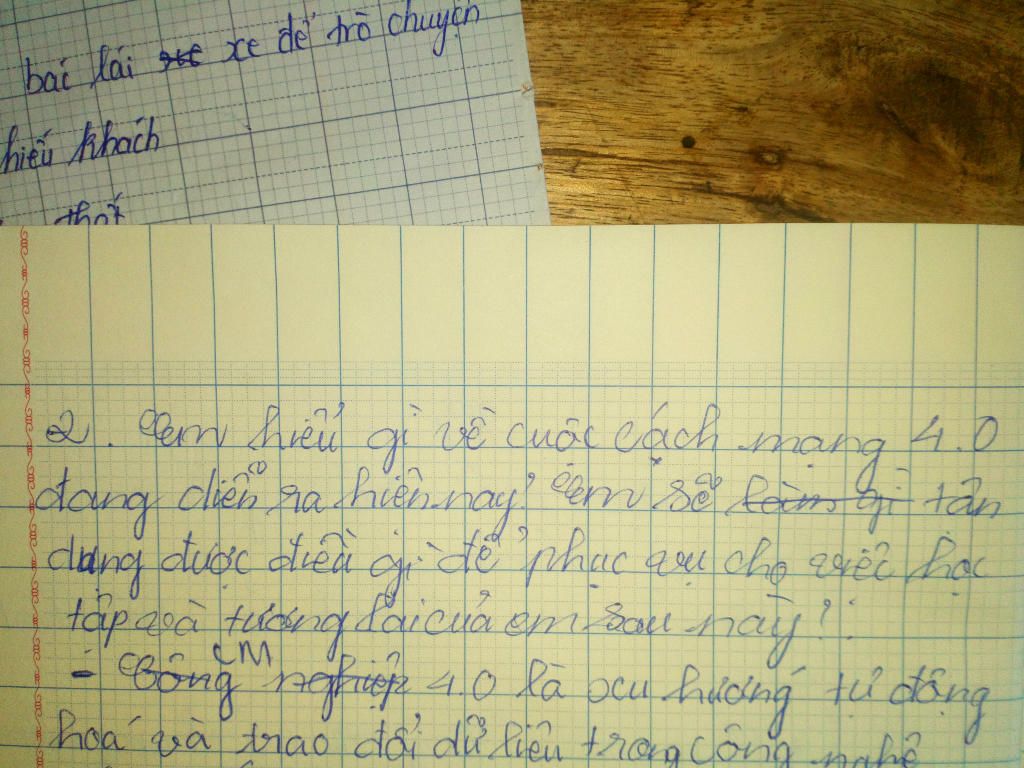 bác lái xe để trò chuyện
hiếu khách
thất
2. Em hiểu gì về cuộc cách mạng 4.0
đang diễn ra hiện nay? Em sẽ làm gì tận
dụng được điều gì để phục vụ cho việc học
tập và tương lai của em sau này?
- Công nghiệp CM 4.0 là xu hướng tự động
hoá và trao đổi dữ liệu trong công nghệ